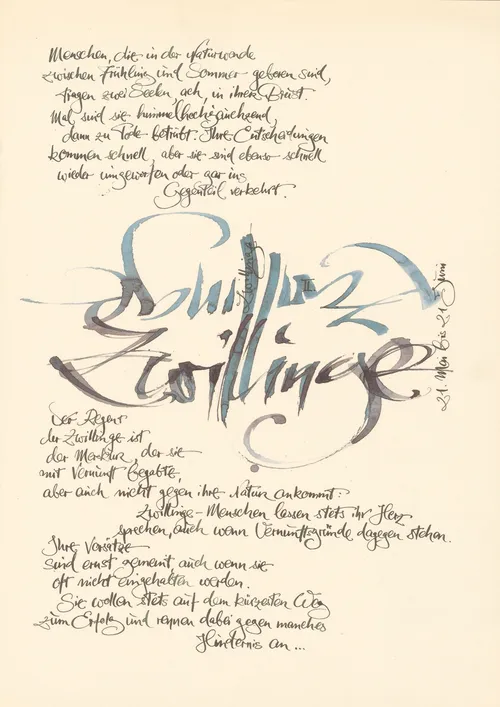 Menschen, die in der Naturwende
zwischen Frühling und Sommer geboren sind,
tragen zwei Seelen, ach, in ihrer Brust.
Mal sind sie himmelhochjauchzend,
dann zu Tode betrübt. Ihre Entscheidungen
kommen schnell, aber sie sind ebenso schnell
wieder umgeworfen oder gar ins
Gegenteil verkehrt.
Zwillinge
II
Zwillinge
21. Mai bis 21. Juni
Der Regent
der Zwillinge ist
der Merkur, der sie
mit Vernunft begabte,
aber auch nicht gegen ihre Natur ankommt:
Zwillinge-Menschen lassen stets ihr Herz
sprechen, auch wenn Vernunftsgründe dagegen stehen.
Ihre Vorsätze
sind ernst gemeint auch wenn sie
oft nicht eingehalten werden.
Sie wollen stets auf dem kürzesten Weg
zum Erfolg und rennen dabei gegen manches
Hindernis an...